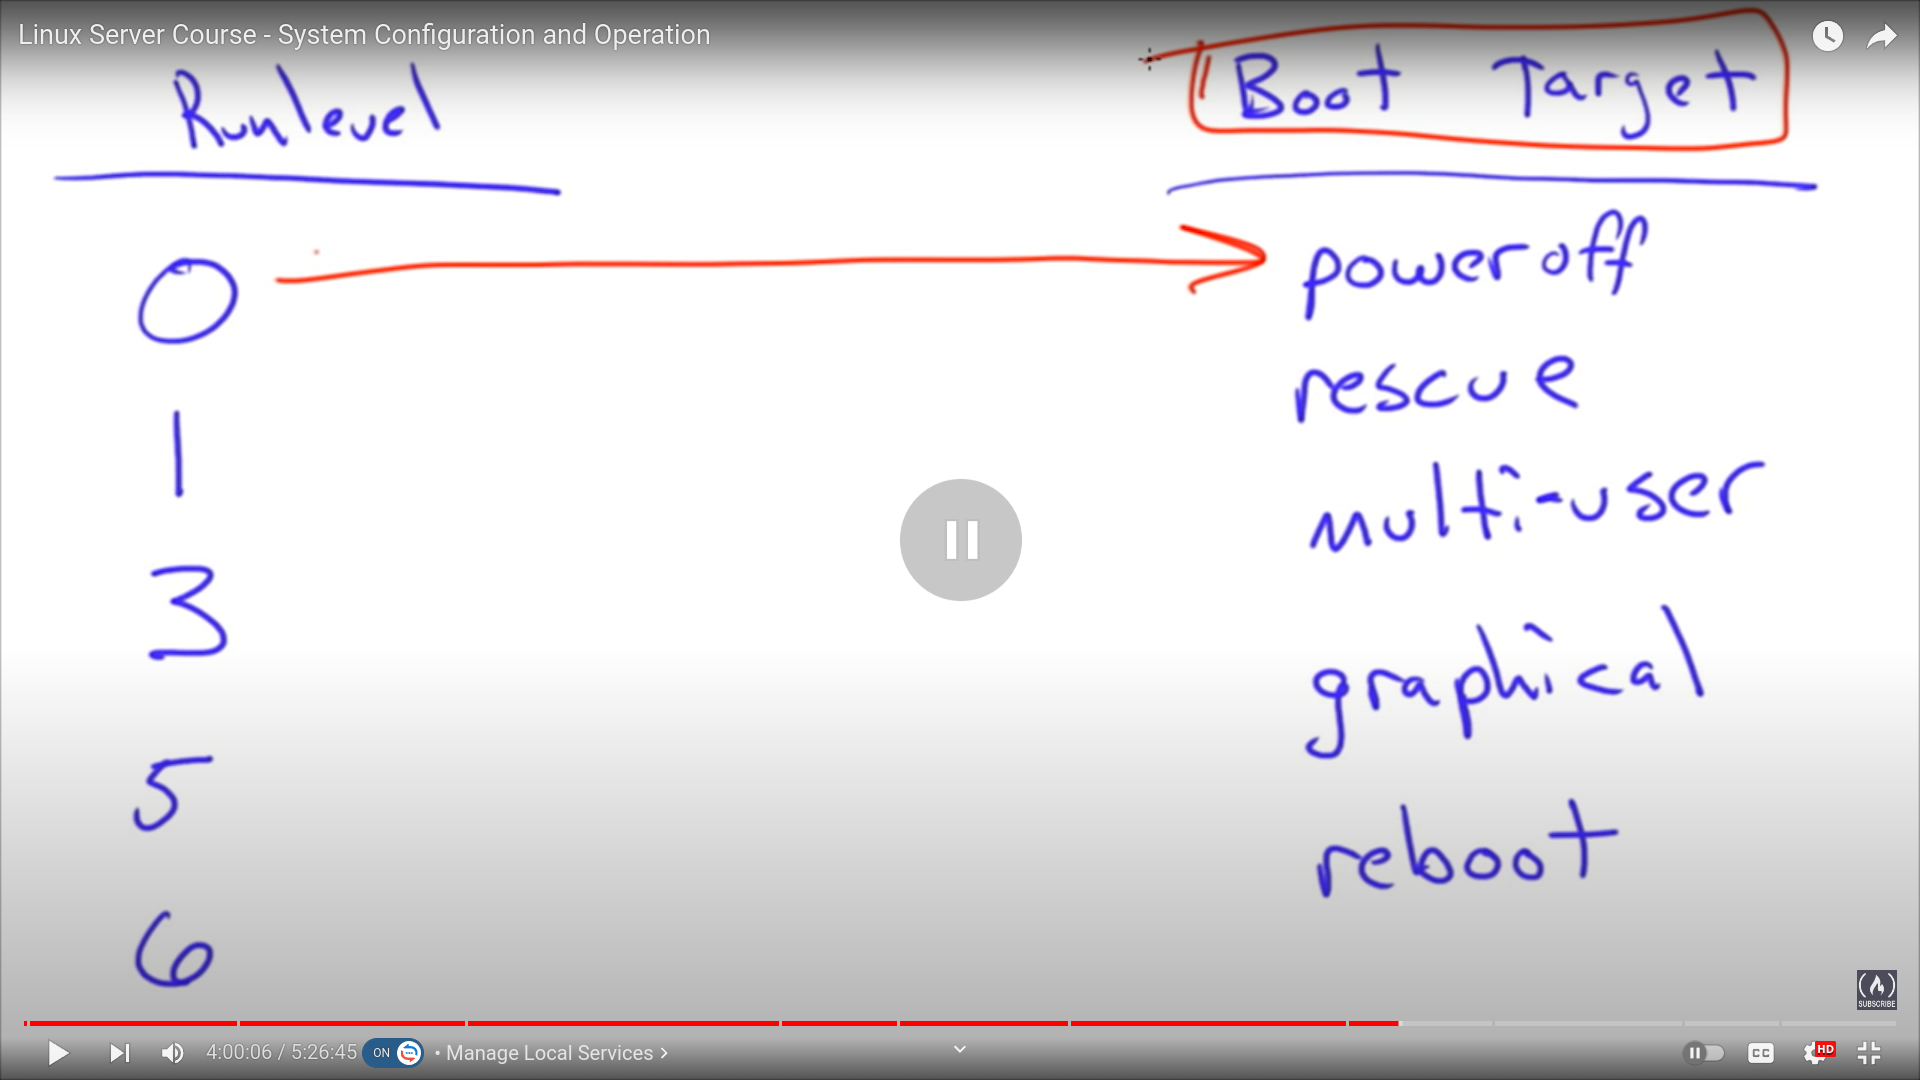 Linux Server Course - System Configuration and Operation
Runlevel Boot Target
0 poweroff
1 rescue
3 multi-user
5 graphical
6 reboot
SUBSCRIBE
4:00:06 / 5:26:45 ON • Manage Local Services
CC HD